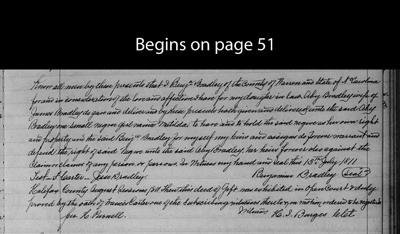 Begins on page 51
Know all men by these presents that I Benjn. Bradley of the County of Warren and State of N Carolina
for and in consideration of the love and affection I have for my daughter in law Aby Bradley wife of
James Bradley do give and deliver and by these presents have given and delivered unto the said Aby
Bradley one small negro girl named Matilda to have and to hold the said negro as her own right
and property and the said Benjn. Bradley for myself my heirs and assigns do forever warrant and
defend the right of said negro unto the said Aby Bradley her heirs forever also against the
claim or claims of any person or persons. In Witness my hand and seal this 15th July 1811
Test. Carter Bradley. Benjamin Bradley Seal
Halifax County August Sessions 1811 Then this deed of Gift was exhibited in open Court & duly
proved by the oath of Carter one of the subscribing witnesses thereto, on motion ordered to be registered
H. Purnell. Witness H. Burges Clk.